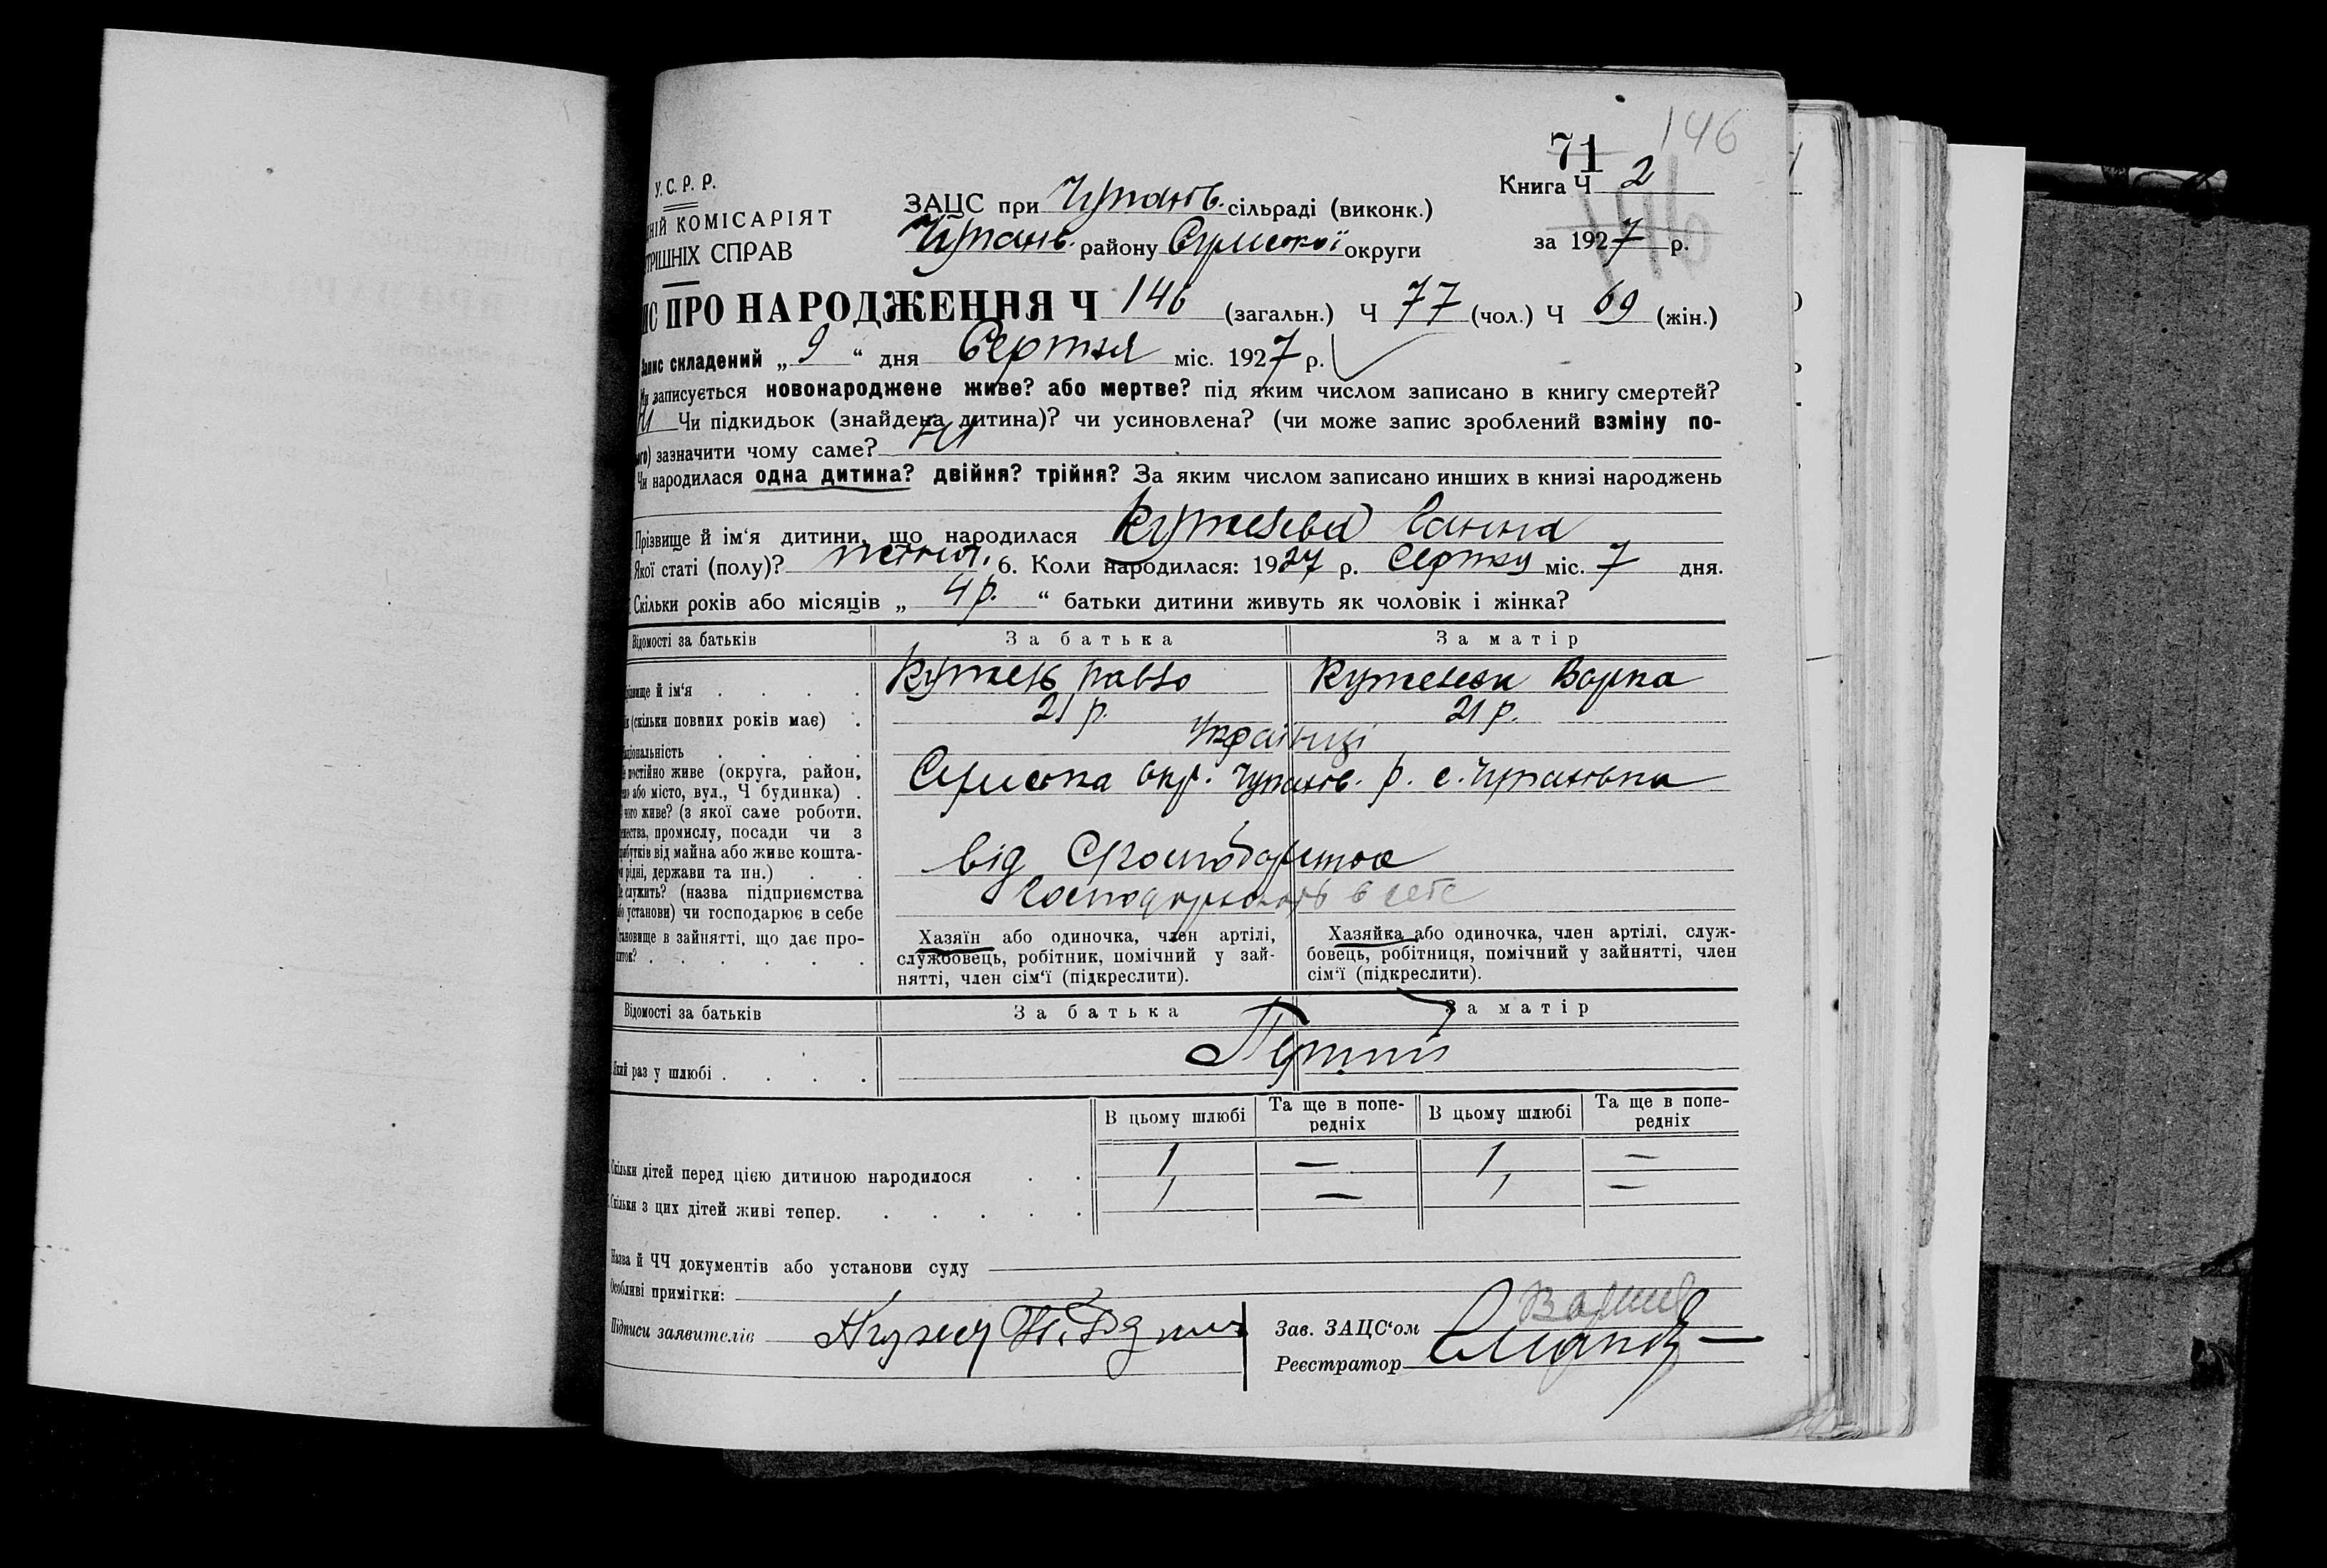 146
71
У. С. Р. Р.
Книга Ч 2
146
ЗАЦС при Чупахів. сільраді (виконк.)
НІЙ КОМІСАРІЯТ
Чупахів. району Сумської округи
за 1927 р.
ТРІШНІХ СПРАВ
ИС ПРО НАРОДЖЕННЯ Ч 146 (загальн.) Ч 77 (чол.) Ч 69 (жін.)
Запис складений „ 9 “ дня Серпня міс. 1927 р.
Чи записується новонароджене живе? або мертве? під яким числом записано в книгу смертей?
Ні Чи підкидьок (знайдена дитина)? чи усиновлена? (чи може запис зроблений взміну по-
ого) зазначити чому саме? Ні
Чи народилася одна дитина? двійня? трійня? За яким числом записано инших в книзі народжень
Прізвище й ім‘я дитини, що народилася Ганна
Якої статі (полу)? 6. Коли народилася: 1927 р. Серпня міс. 7 дня.
Скільки років або місяців „ 4 р. “ батьки дитини живуть як чоловік і жінка?
Відомості за батьків За батька За матір
звище й ім‘я Павло Варка
к (скільки повних років має) 21 р. 21 р.
аціональність Українці
е постійно живе (округа, район,
ело або місто, вул., Ч будинка) Сумська окр. Чупахів. р. с. Чупахівка
чого живе? (з якої саме роботи,
емества, промислу, посади чи з
рибутків від майна або живе кошта-
и рідні, держави та ин.) від
е служить? (назва підприємства
бо установи) чи господарює в себе Господарюють в себе
тановище в зайнятті, що дає про-
иток?
Хазяїн або одиночка, член артілі,
службовець, робітник, помічний у зай-
нятті, член сім‘ї (підкреслити).
Хазяйка або одиночка, член артілі, служ-
бовець, робітниця, помічний у зайнятті, член
сім‘ї (підкреслити).
Відомості за батьків За батька За матір
Який раз у шлюбі Перший
В цьому шлюбі Та ще в попе-
редніх В цьому шлюбі Та ще в попе-
редніх
Скільки дітей перед цією дитиною народилося 1 — 1 —
Скільки з цих дітей живі тепер. 1 — 1 —
Назва й ЧЧ документів або установи суду
Особливі примітки:
Підписи заявителів
Зав. ЗАЦС‘ом
Реєстратор